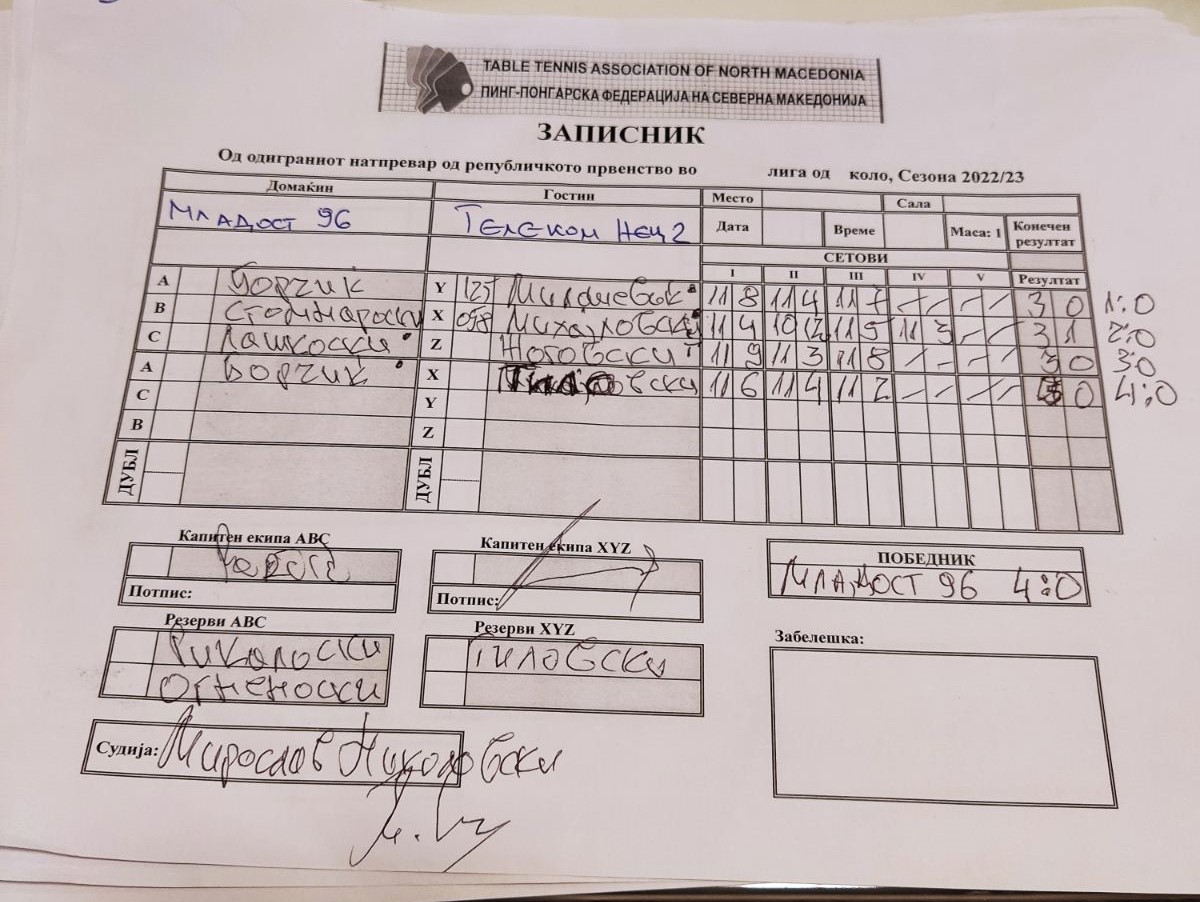 TABLE TENNIS ASSOCIATION OF NORTH MACEDONIA
ПИНГ-ПОНГАРСКА ФЕДЕРАЦИЈА НА СЕВЕРНА МАКЕДОНИЈА
ЗАПИСНИК
Од одиграниот натпревар од републичкото првенство во лига од коло, Сезона 2022/23
Домаќин Гостин Место Сала
Младост 96 Телеком Нец 2 Дата Време Маса: 1 Конечен резултат
СЕТОВИ
I II III IV V Резултат
A Борчик Y 125 11 8 11 4 11 7 / / / / 3 0 1:0
B X 098 Михајловски 11 4 10 12 11 5 11 3 / / 3 1 2:0
C Лашкоски Z Жоговски 11 9 11 3 11 8 / / / / 3 0 3:0
A Борчик X 11 6 11 4 11 2 / / / / 0 4:0
C Y
B Z
ДУБЛ ДУБЛ
Капитен екипа ABC Капитен екипа XYZ ПОБЕДНИК
Младост 96 4:0
Потпис: Потпис:
Резерви ABC Резерви XYZ Забелешка:
Огненоски
Судија: Мирослав Николовски